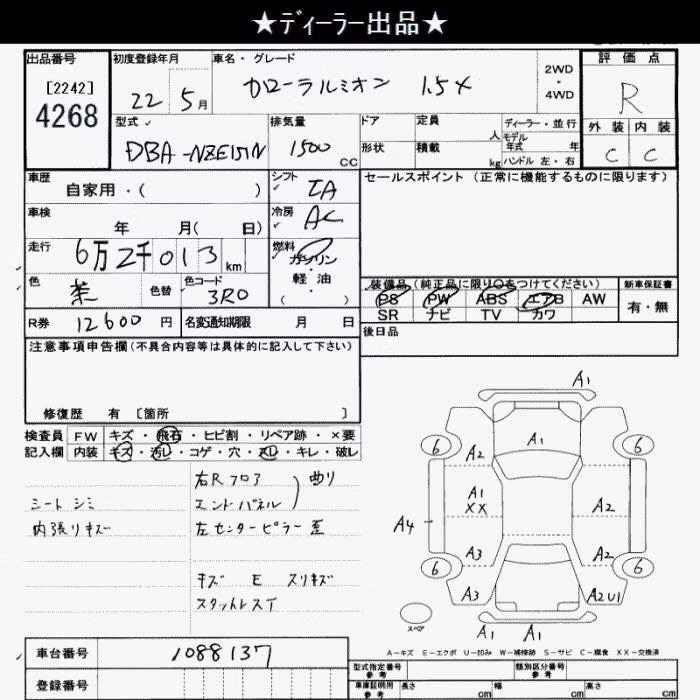 ★ディーラー出品★
出品番号 初度登録年月 車名・グレード 評価点
[2242] 22 5月 カローラルミオン 1.5X 2WD・4WD R
4268
型式 排気量 ドア 定員 人 ディーラー・並行 外装 内装
DBA-NZE151N 1500 CC 形状 積載 kg モデル年式 年 C C
ハンドル 左・右
車歴 自家用・( ) シフト IA セールスポイント(正常に機能するものに限ります)
車検 年 月( 日) 冷房 AC
走行 6万2千013 km 燃料 ガソリン
軽油
( )
色 茶 色替 色コード 3R0 装備品(純正品に限り○をつけてください) 新車保証書
PS PW ABS エアB AW 有・無
SR ナビ TV カワ
R券 12600円 名変通知期限 月 日 後日品
注意事項申告欄(不具合内容等は具体的に記入して下さい)
修復歴 有 [箇所 ]
検査員 FW キズ・飛石・ヒビ割・リペア跡・×要
記入欄 内装 キズ・汚レ・コゲ・穴・スレ・キレ・破レ
右Rフロア
シート シミ エンドパネル 曲り
内張リキズ 左センターピラー 歪
キズ E スリキズ
スタットレスイ
A1
6 6
A2 A1
A1
XX A2
A4
A3 A2
6 6
A3 A2U1
スペア A1 A1
A－キズ E－エクボ U－凹み W－補修跡 S－サビ C－腐食 XX－交換済
車台番号 1088137 型式指定番号 参考 類別区分番号 参考
登録番号 車庫証明用 参考 長さ cm 幅 cm 高さ cm